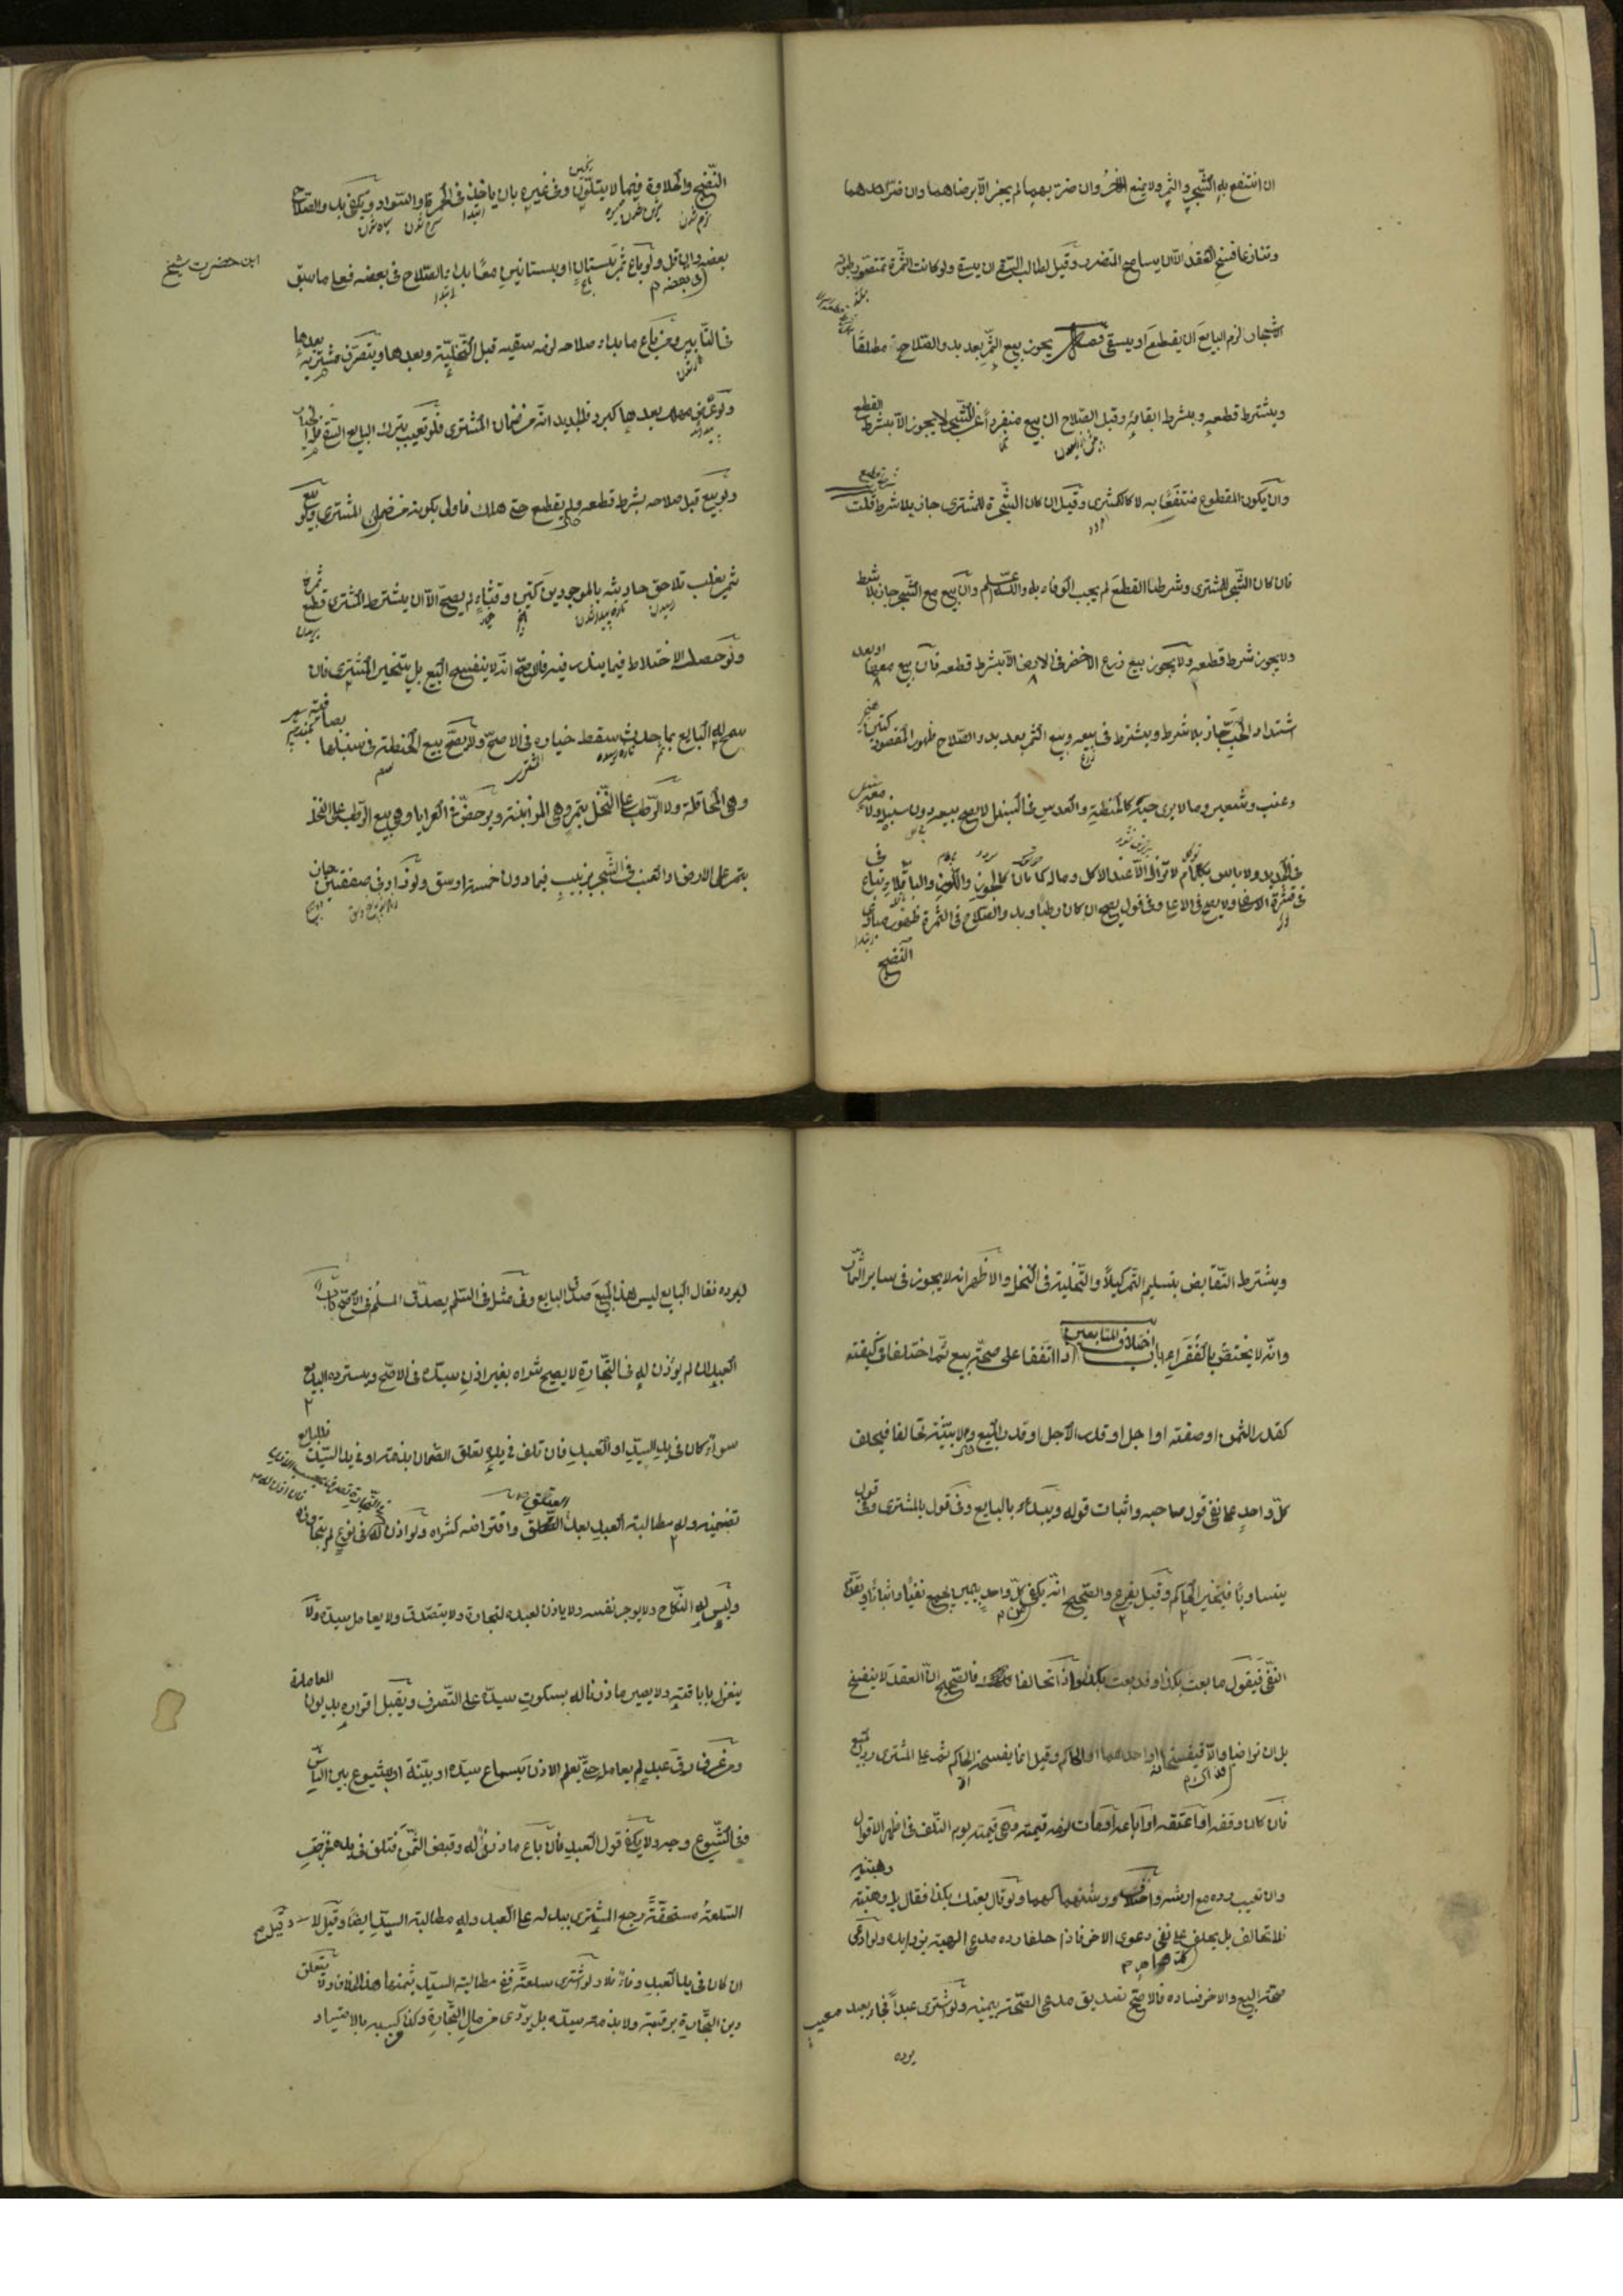 ان انتفع به الشجر والثمر ولا يمنع الآخر وان ضر بهما لم يجز الا برضاهما وان ضر احدهما
وتنازعا فسخ العقد الا ان يسامح المتضرر وقيل لطالب السقي ان يسقي ولو كانت الثمرة تمتص رطوبة
الاشجار لزم البايع ان يقطع او يسقي فصل يجوز بيع الثمر بعد بدو الصلاح مطلقا
وبشرط قطعه وبشرط ابقائه وقبل الصلاح ان بيع منفردا عن الشجر لا يجوز الا بشرط القطع
وان يكون المقطوع منتفعا به لا ككمثرى وقيل ان كان الشجرة للمشتري جاز بلا شرط قلت
فان كان الشجر للمشتري وشرطنا القطع لم يجب الوفاء به والله اعلم وان بيع مع الشجر جاز بلا شرط
ولا يجوز شرط قطعه ولا يجوز بيع زرع الاخضر في الارض الا بشرط قطعه فان بيع معها او بعد
اشتداد الحب جاز بلا شرط ويشترط في بيعه وبيع الثمر بعد بدو الصلاح ظهور المقصود كتين
وعنب وشعير وما لا يرى حبه كالحنطة والعدس في السنبل لا يصح بيعه دون سنبله ولا معه
في الجديد ولا باس بكمام لا تزال الا عند الاكل وما له كمامان كالجوز واللوز والباقلا يباع في
قشره الاسفل ولا يصح في الاعلى وفي قول يصح ان كان رطبا وبدو الصلاح في الثمرة ظهور مبادي
النضج
النضج والحلاوة فيما لا يتلون وفي غيره بان ياخذ في الحمرة او السواد ويكفي بدو الصلاح
بعضه وان قل ولو باع ثمر بستان او بستانين معا بدا الصلاح في بعضه فعلى ما سبق
ابن حضرت شيخ
في التابير ومن باع ما بدا صلاحه لزمه سقيه قبل التخلية وبعدها ويتصرف مشتريه بعدها
ولو عرض مهلك بعدها كبرد فالجديد انه من ضمان المشتري فلو تعيب بترك البايع السقي فله الخيار
ولو بيع قبل صلاحه بشرط قطعه ولم يقطع حتى هلك فاولى بكونه من ضمان المشتري ولو بيع
ثمر يغلب تلاحق حادثه بالموجود كتين وقثاء لم يصح الا ان يشترط المشتري قطع ثمره
ولو حصل الاختلاط فيما يندر فيه فالاصح انه لا ينفسخ البيع بل يتخير المشتري فان
سمح له البايع بما حدث سقط خياره في الاصح ولا يصح بيع الحنطة في سنبلها بصافية
وهي المحاقلة ولا الرطب على النخل بتمر وهي المزابنة ويرخص في العرايا وهي بيع الرطب على النخل
بتمر على الارض او العنب في الشجر بزبيب فيما دون خمسة اوسق ولو زاد في صفقتين جاز
ويشترط التقابض بتسليم التمر كيلا والتخلية في النخل والاظهر انه لا يجوز في ساير الثمار
وانه لا يختص بالفقراء باب اختلاف المتابعين اذا اتفقا على صحة بيع ثم اختلفا في كيفيته
كقدر الثمن او صفته او اجل او قدر الاجل او قدر المبيع ولا بينة تحالفا فيحلف
كل واحد على نفي قول صاحبه واثبات قوله ويبداء بالبايع وفي قول بالمشتري وفي قول
يتساويا فيتخير الحاكم وقيل يقرع والصحيح انه يكفي كل واحد يمين يجمع نفيا واثباتا ويقدم
النفي فيقول ما بعت بكذا وقد بعت بكذا واذا تحالفا فالصحيح ان العقد لا ينفسخ
بل ان تراضيا والا فيفسخانه او احدهما او الحاكم وقيل انما يفسخه الحاكم ثم على المشتري رد المبيع
فان كان وقفه او اعتقه او باعه او مات لزمه قيمته وهي قيمته يوم التلف في اظهر الاقوال
وان تعيب رده مع ارشه واختلاف ورثتهما كهما ولو قال بعتك بكذا فقال بل وهبتنيه
فلا تحالف بل يحلف على نفي دعوى الاخر فاذا حلفا رده مدعي الهبة بزوايده ولو ادعى
صحة البيع والاخر فساده فالاصح تصديق مدعي الصحة بيمينه ولو اشترى عبدا فجاء بعبد معيب
ليرده
ليرده فقال البايع ليس هذا المبيع صدق البايع وفي مثله في السلم يصدق المسلم في الاصح باب
العبد ان لم يؤذن له في التجارة لا يصح شراه بغير اذن سيده في الاصح ويسترده البايع
سواء كان في يد السيد او العبد فان تلف في يده تعلق الضمان بذمته او في يد السيد فللبايع
تضمينه وله مطالبة العبد بعد العتق واقتراضه كشراه ولو اذن له في نوع لم يتجاوزه
وليس له النكاح ولا يوجر نفسه ولا ياذن لعبده لتجارة ولا يتصدق ولا يعامل سيده ولا
ينعزل باباقته ولا يصير ماذونا له بسكوت سيده على التصرف ويقبل اقراره بديون المعاملة
ومن عرف رق عبد لم يعامله حتى يعلم الاذن بسماع سيده او بينة او بشيوع بين الناس
وفي الشيوع وجه ولا يكفي قول العبد فان باع ماذون له وقبض الثمن فتلف في يده فخرجت
السلعة مستحقة رجع المشتري ببدله على العبد وله مطالبة السيد ايضا وقيل لا وقيل
ان كان في يد العبد وفاء فلا ولو اشترى سلعة ففي مطالبة السيد بثمنها هذا الخلاف ولا يتعلق
دين التجارة برقبته ولا بذمة سيده بل يؤدى من مال التجارة وكذا كسبه بالاصطياد